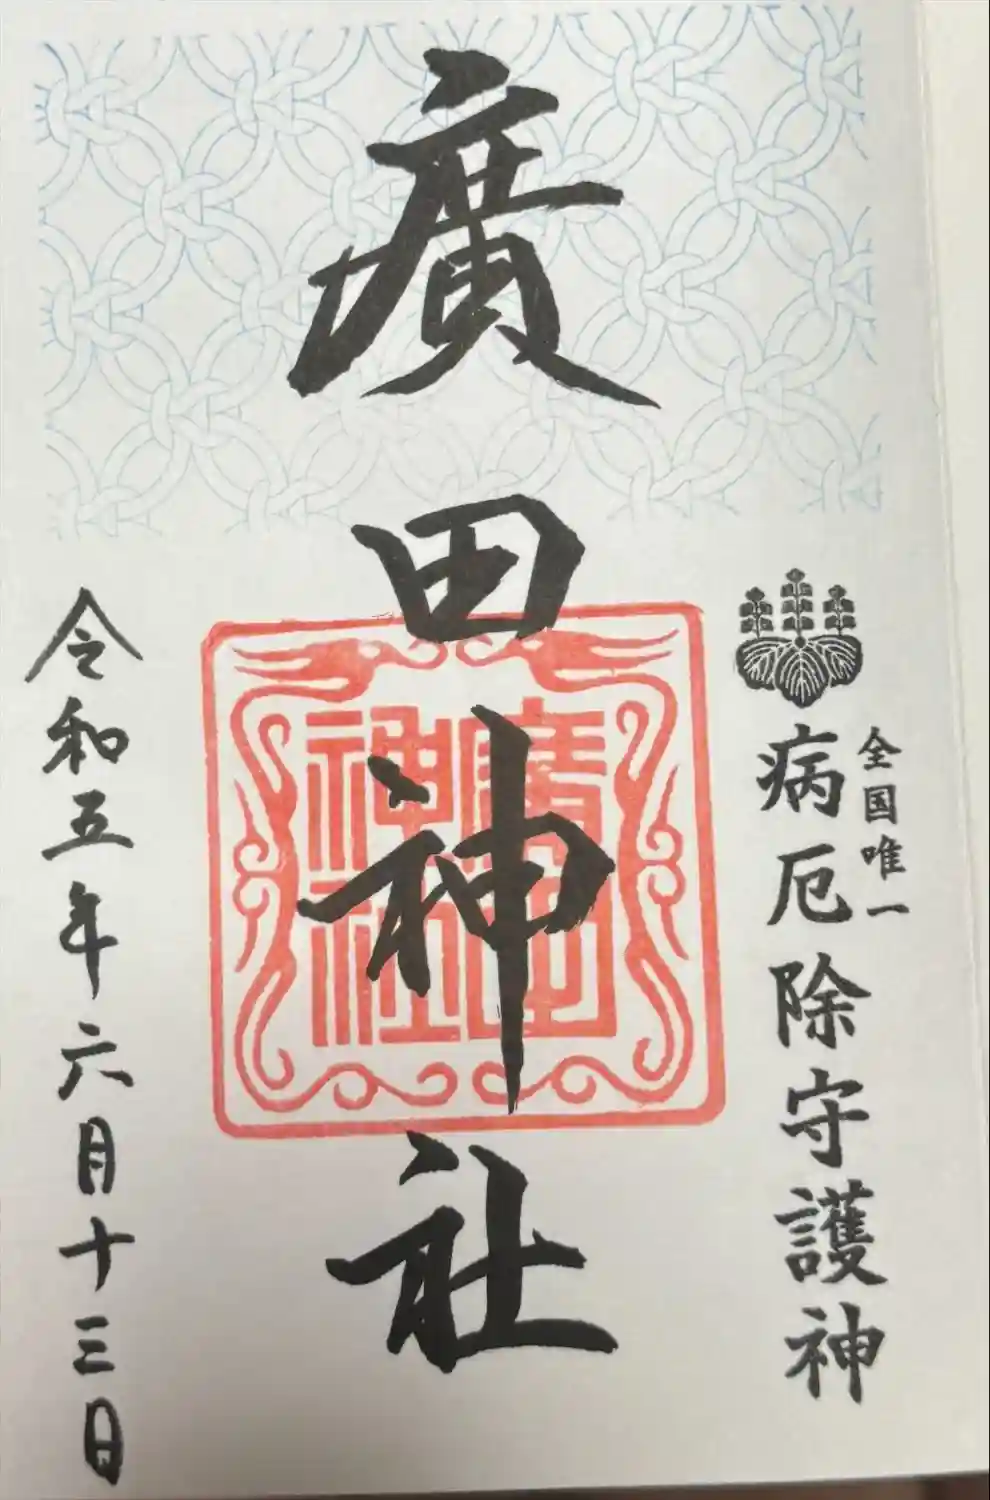 全国唯一
病厄除守護神
廣田神社
廣田
神社
令和五年六月十三日